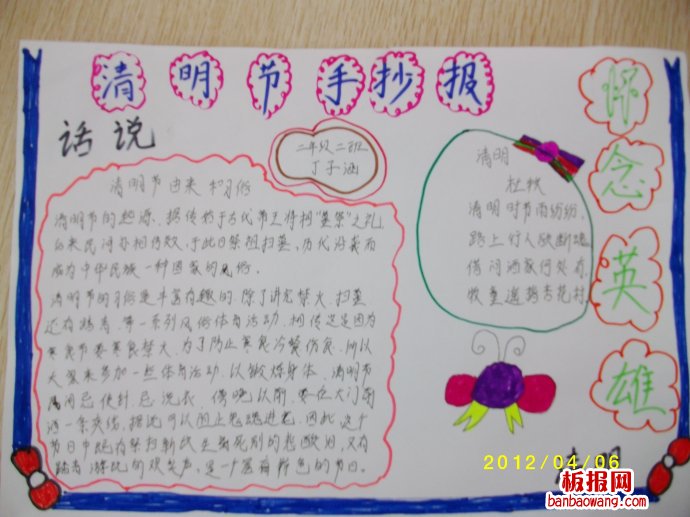 清明节手抄报
话说
二年级二班
丁子涵
清明节由来和习俗
清明节的起源、据传始于古代帝王将相"墓祭"之礼,
后来民间亦相仿效,于此日祭祖扫墓,历代沿袭而
成为中华民族一种固定的风俗。
清明节的习俗是丰富有趣的,除了讲究禁火、扫墓
还有踏青、等一系列风俗体育活动,相传这是因为
寒食节要寒食禁火,为了防止寒食冷餐伤身,所以
大家来参加一些体育活动,以锻炼身体。清明节
民间忌使针,忌洗衣,傍晚以前,要在大门前
洒一条灰线,据说可以阻止鬼魂进宅。因此,这个
节日中既有祭扫新坟生离死别的悲酸泪,又有
踏青游玩的欢笑声,是一个富有特色的节日。
清明
杜牧
清明时节雨纷纷,
路上行人欲断魂
借问酒家何处有
牧童遥指杏花村
怀念英雄
2012/04/06
板报网
banbaowang.com